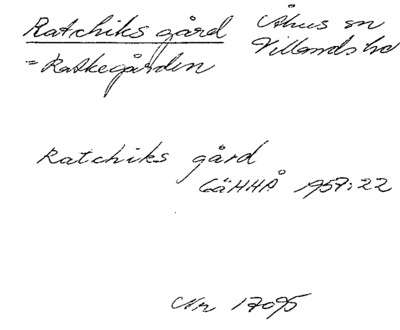 Ratchiks gård Åhus sn
= Ratkegården Villands hd
Ratchiks gård
GäHHÅ 1957:22
Nr 17095